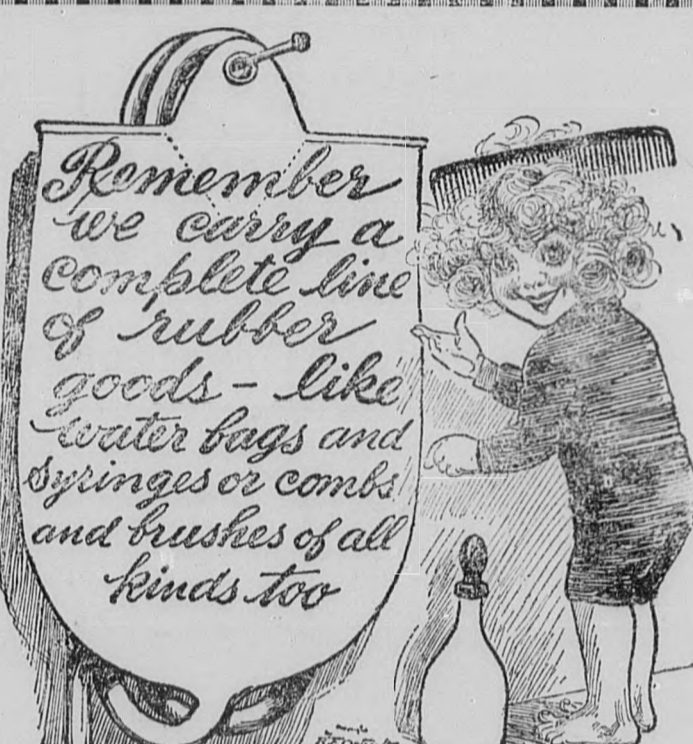 Remember
we carry a
complete line
of rubber
goods - like
water bags and
syringes or combs
and brushes of all
kinds too